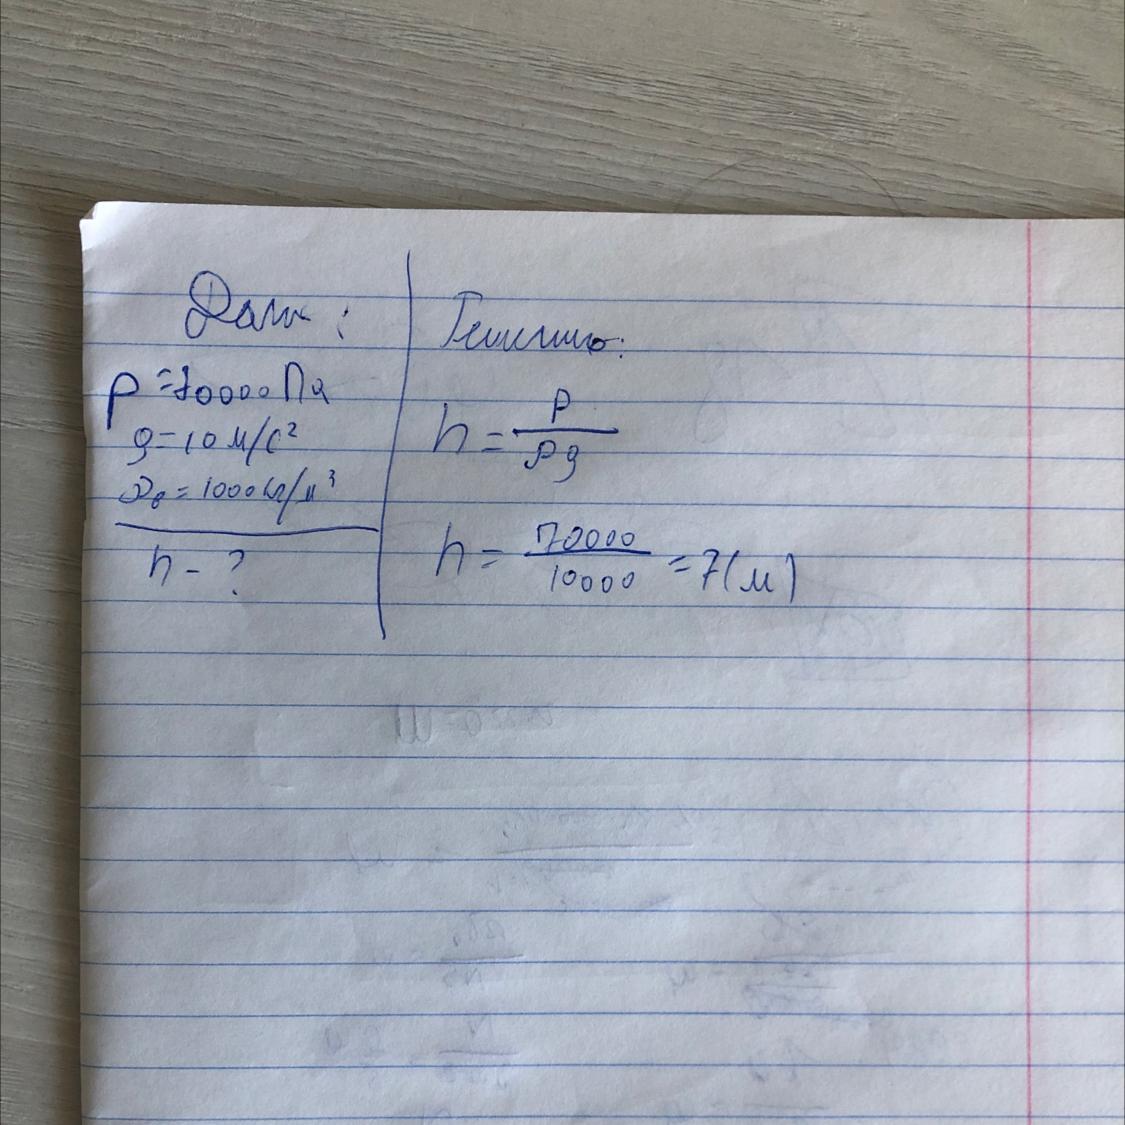 Дано:
p = 70000 Па
g = 10 м/с²
ρв = 1000 кг/м³
h - ?
Решение:
h = p / ρg
h = 70000 / 10000 = 7(м)